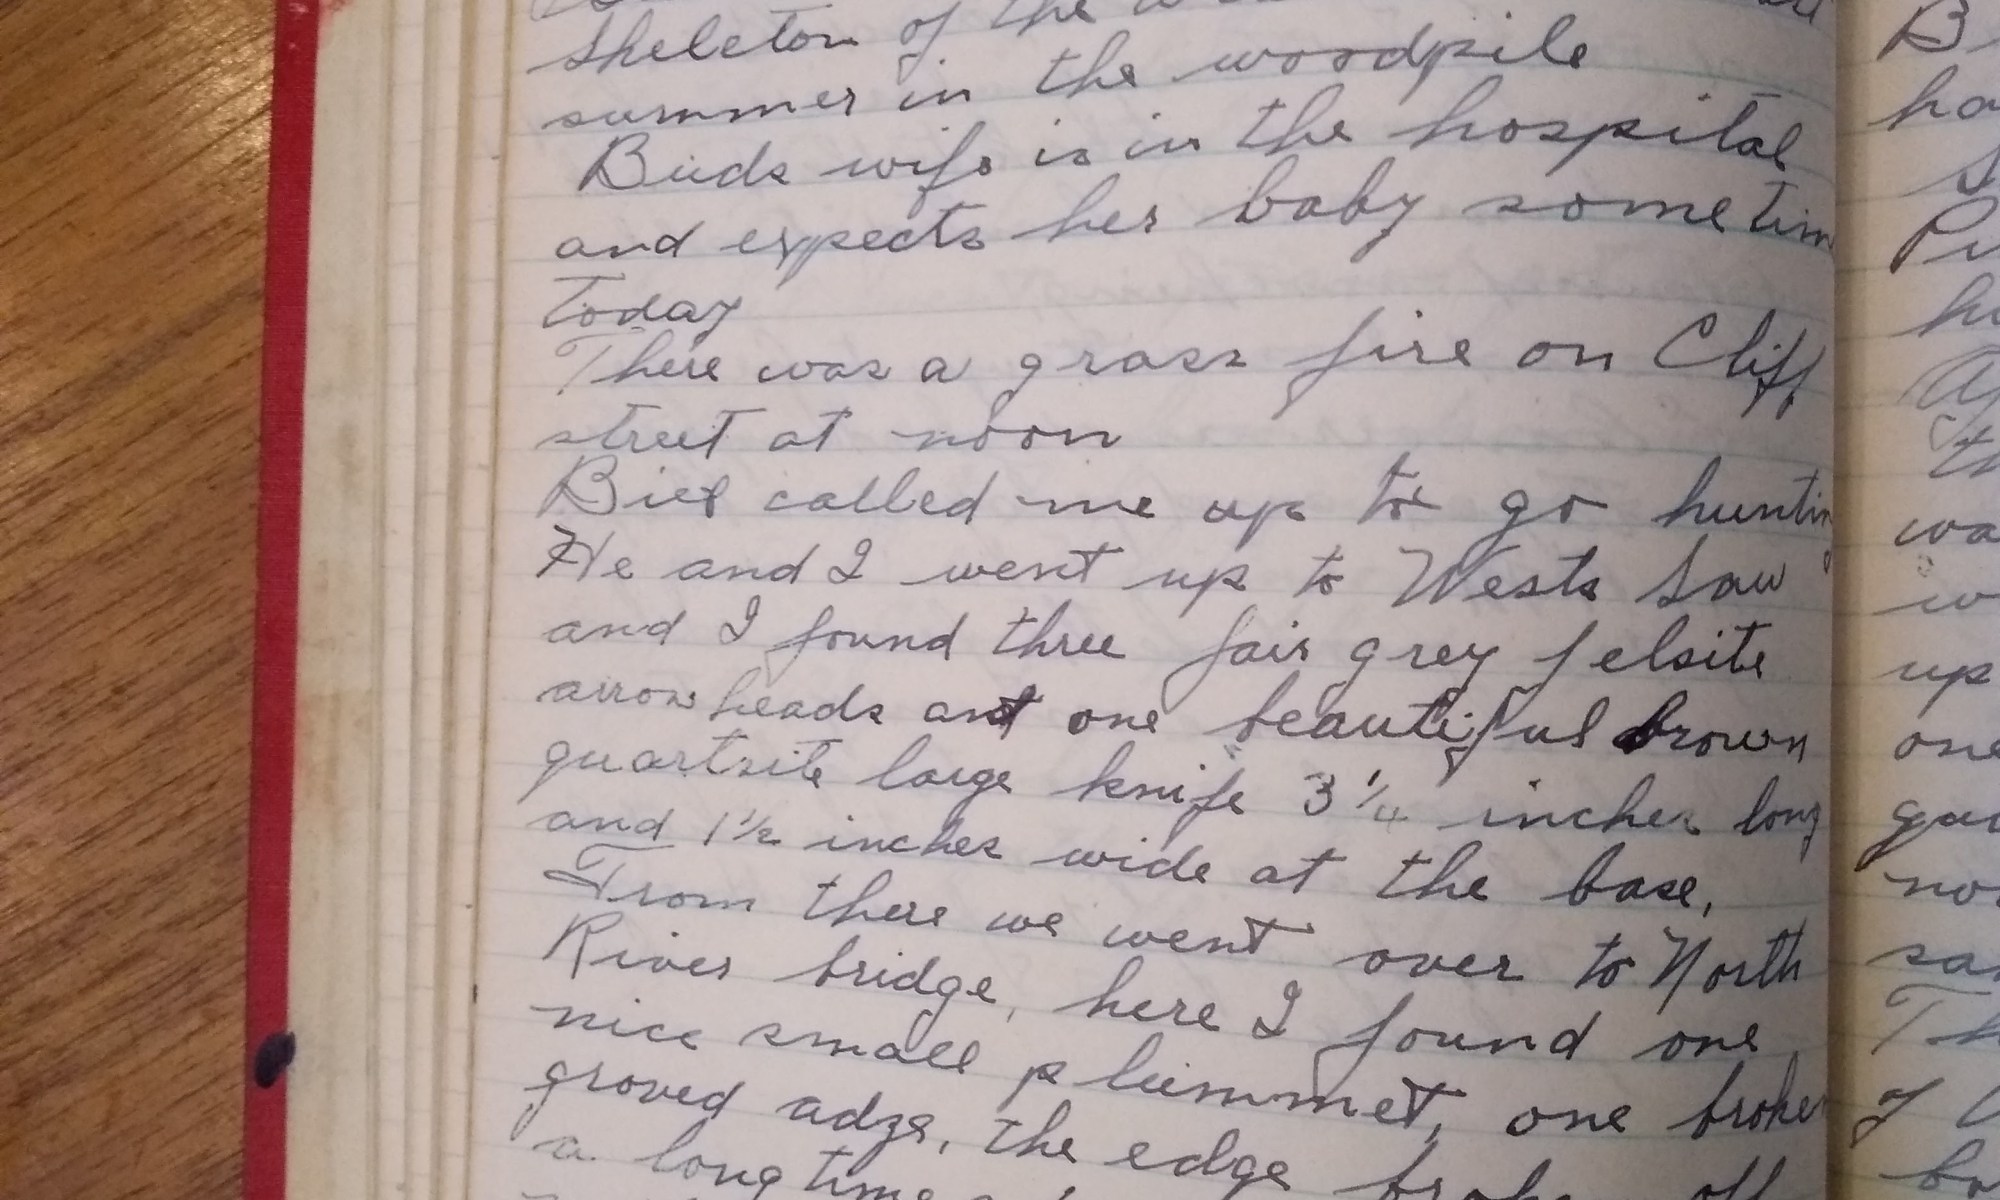 skeleton of the
summer in the woodpile
Buds wife is in the hospital
and expects her baby sometim
today
There was a grass fire on Cliff
street at noon
Bill called me up to go huntin
He and I went up to Wests Saw
and I found three fair grey felsite
arrowheads and one beautiful brown
quartsite large knife 3 1/4 inches long
and 1 1/2 inches wide at the base,
From there we went over to North
River bridge, here I found one
nice small plummet, one broken
groved adze, the edge broke off
a long time
B
ha
S
Pi
hu
th
wa
w
up
one
qua
no
sa
Th
of
br